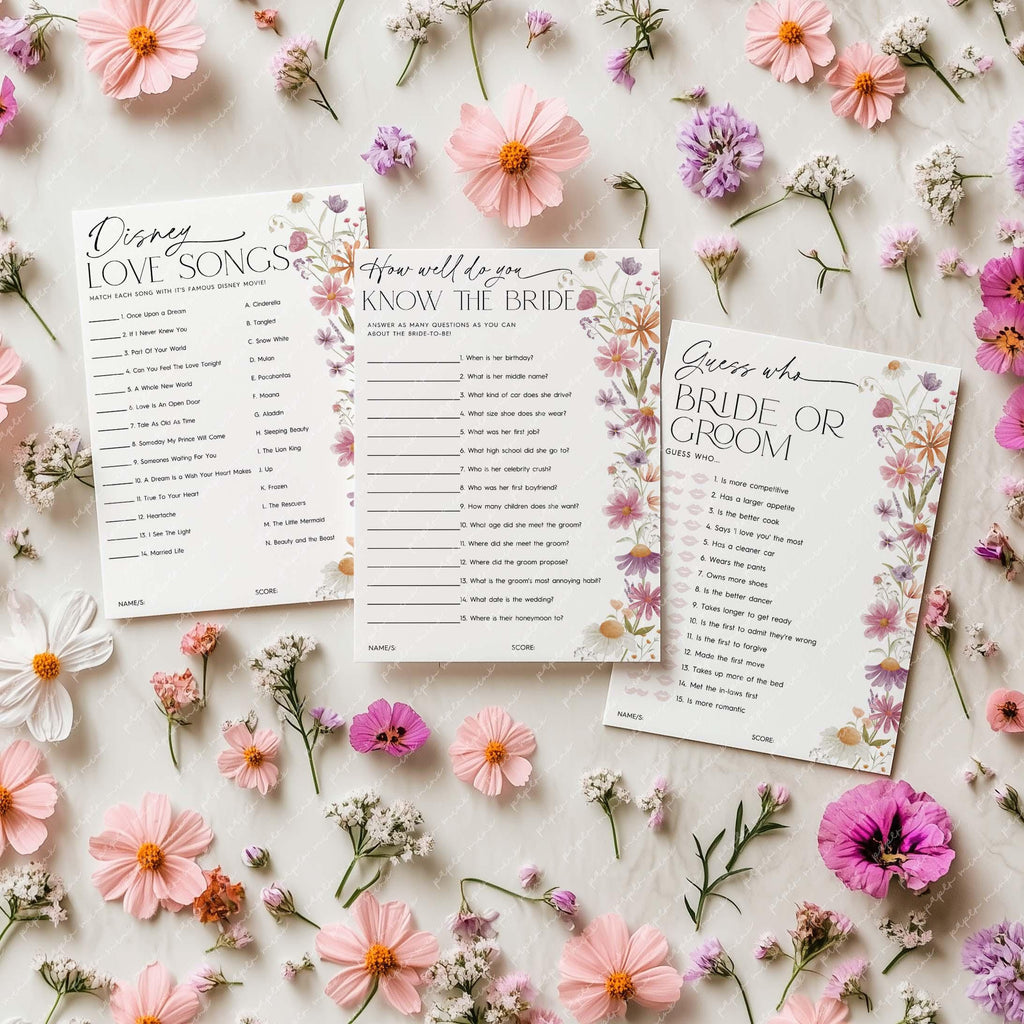 Disney
LOVE SONGS
MATCH EACH SONG WITH IT'S FAMOUS DISNEY MOVIE!
1. Once Upon a Dream
2. If I Never Knew You
3. Part Of Your World
4. Can You Feel The Love Tonight
5. A Whole New World
6. Love Is An Open Door
7. Tale As Old As Time
8. Someday My Prince Will Come
9. Someones Waiting For You
10. A Dream Is a Wish Your Heart Makes
11. True To Your Heart
12. Heartache
13. I See The Light
14. Married Life
A. Cinderella
B. Tangled
C. Snow White
D. Mulan
E. Pocahontas
F. Moana
G. Aladdin
H. Sleeping Beauty
I. The Lion King
J. Up
K. Frozen
L. The Rescuers
M. The Little Mermaid
N. Beauty and the Beast
NAME/S:
SCORE:
How well do you
KNOW THE BRIDE
ANSWER AS MANY QUESTIONS AS YOU CAN
ABOUT THE BRIDE-TO-BE!
1. When is her birthday?
2. What is her middle name?
3. What kind of car does she drive?
4. What size shoe does she wear?
5. What was her first job?
6. What high school did she go to?
7. Who is her celebrity crush?
8. Who was her first boyfriend?
9. How many children does she want?
10. What age did she meet the groom?
11. Where did she meet the groom?
12. Where did the groom propose?
13. What is the groom's most annoying habit?
14. What date is the wedding?
15. Where is their honeymoon to?
NAME/S:
SCORE:
Guess who
BRIDE OR
GROOM
GUESS WHO...
1. Is more competitive
2. Has a larger appetite
3. Is the better cook
4. Says 'I love you' the most
5. Has a cleaner car
6. Wears the pants
7. Owns more shoes
8. Is the better dancer
9. Takes longer to get ready
10. Is the first to admit they're wrong
11. Is the first to forgive
12. Made the first move
13. Takes up more of the bed
14. Met the in-laws first
15. Is more romantic
NAME/S:
SCORE: